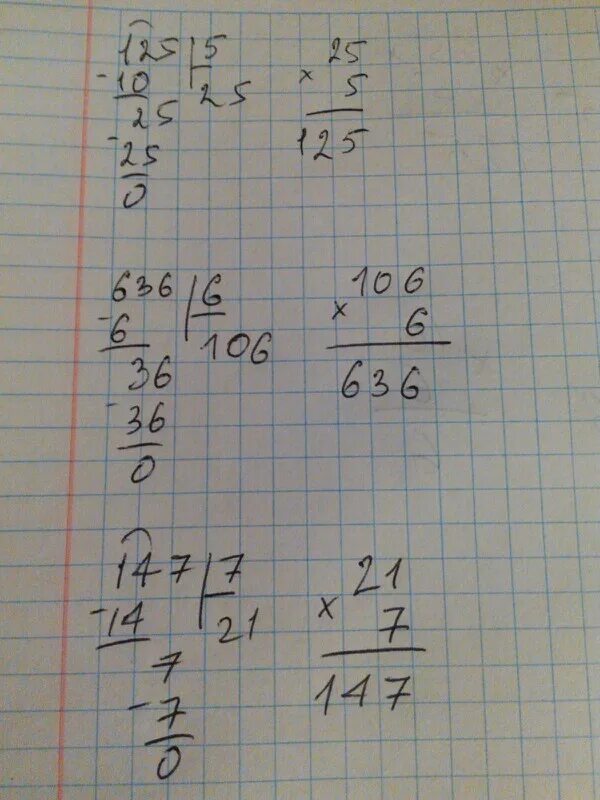 125 | 5 × 25
- 10 25 5
25 125
- 25
0
636 | 6 106
- 6 106 × 6
36 636
- 36
0
147 | 7 21
- 14 21 × 7
7 147
- 7
0